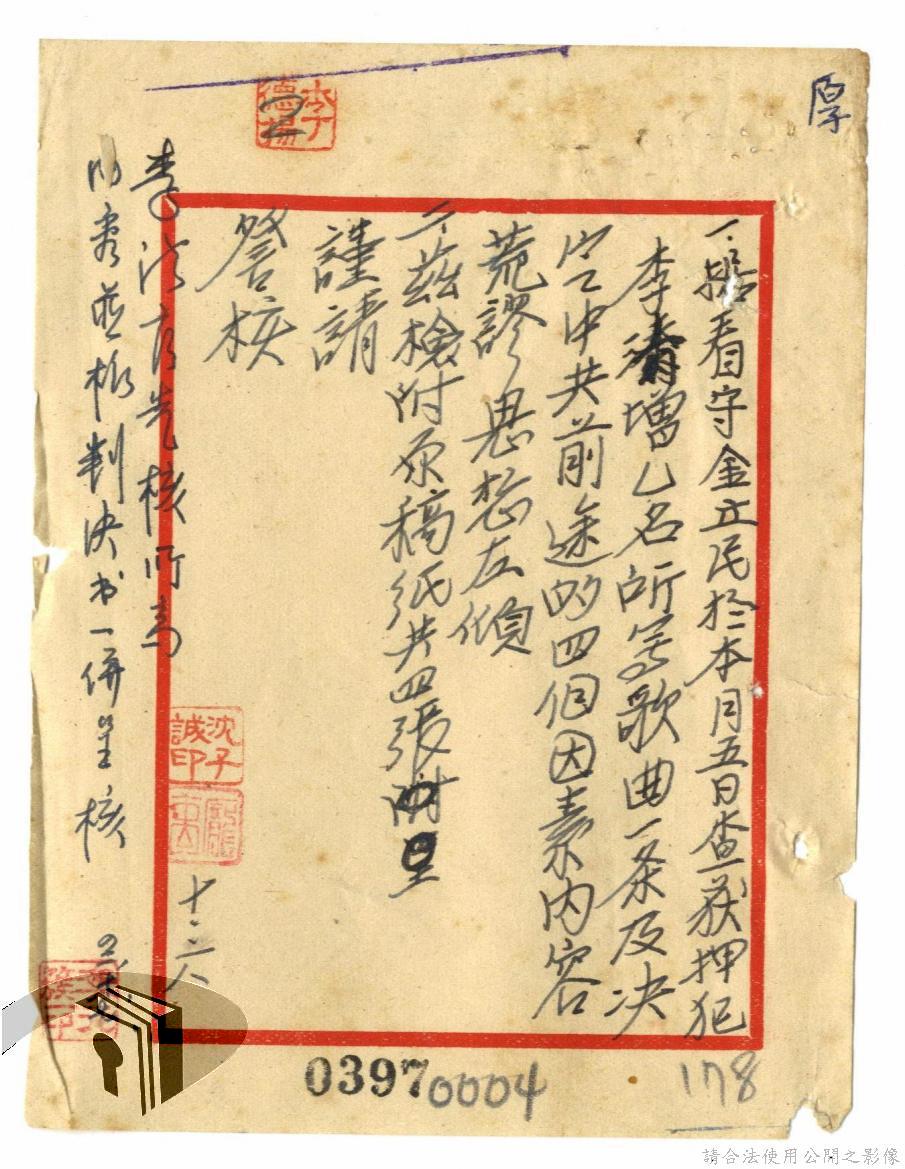 厚
李德揚
2
一、據看守金立民於本月五日查获押犯
李增乙名所寫歌曲一条及决
定中共前途的四個因素內容
荒謬思想左傾
二、茲檢附原稿紙共四張附呈
謹請
詧核
沈子誠印
十、六
李 先核所
判决书一併呈核
0397
0004
178
請合法使用公開之影像